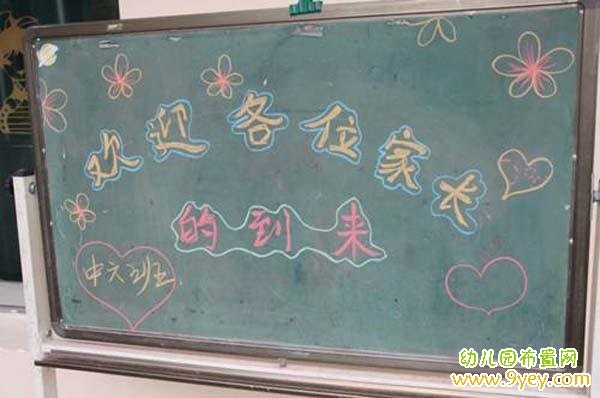 欢迎各位家长
的到来
中六班
幼儿园布置网
www.9yey.com